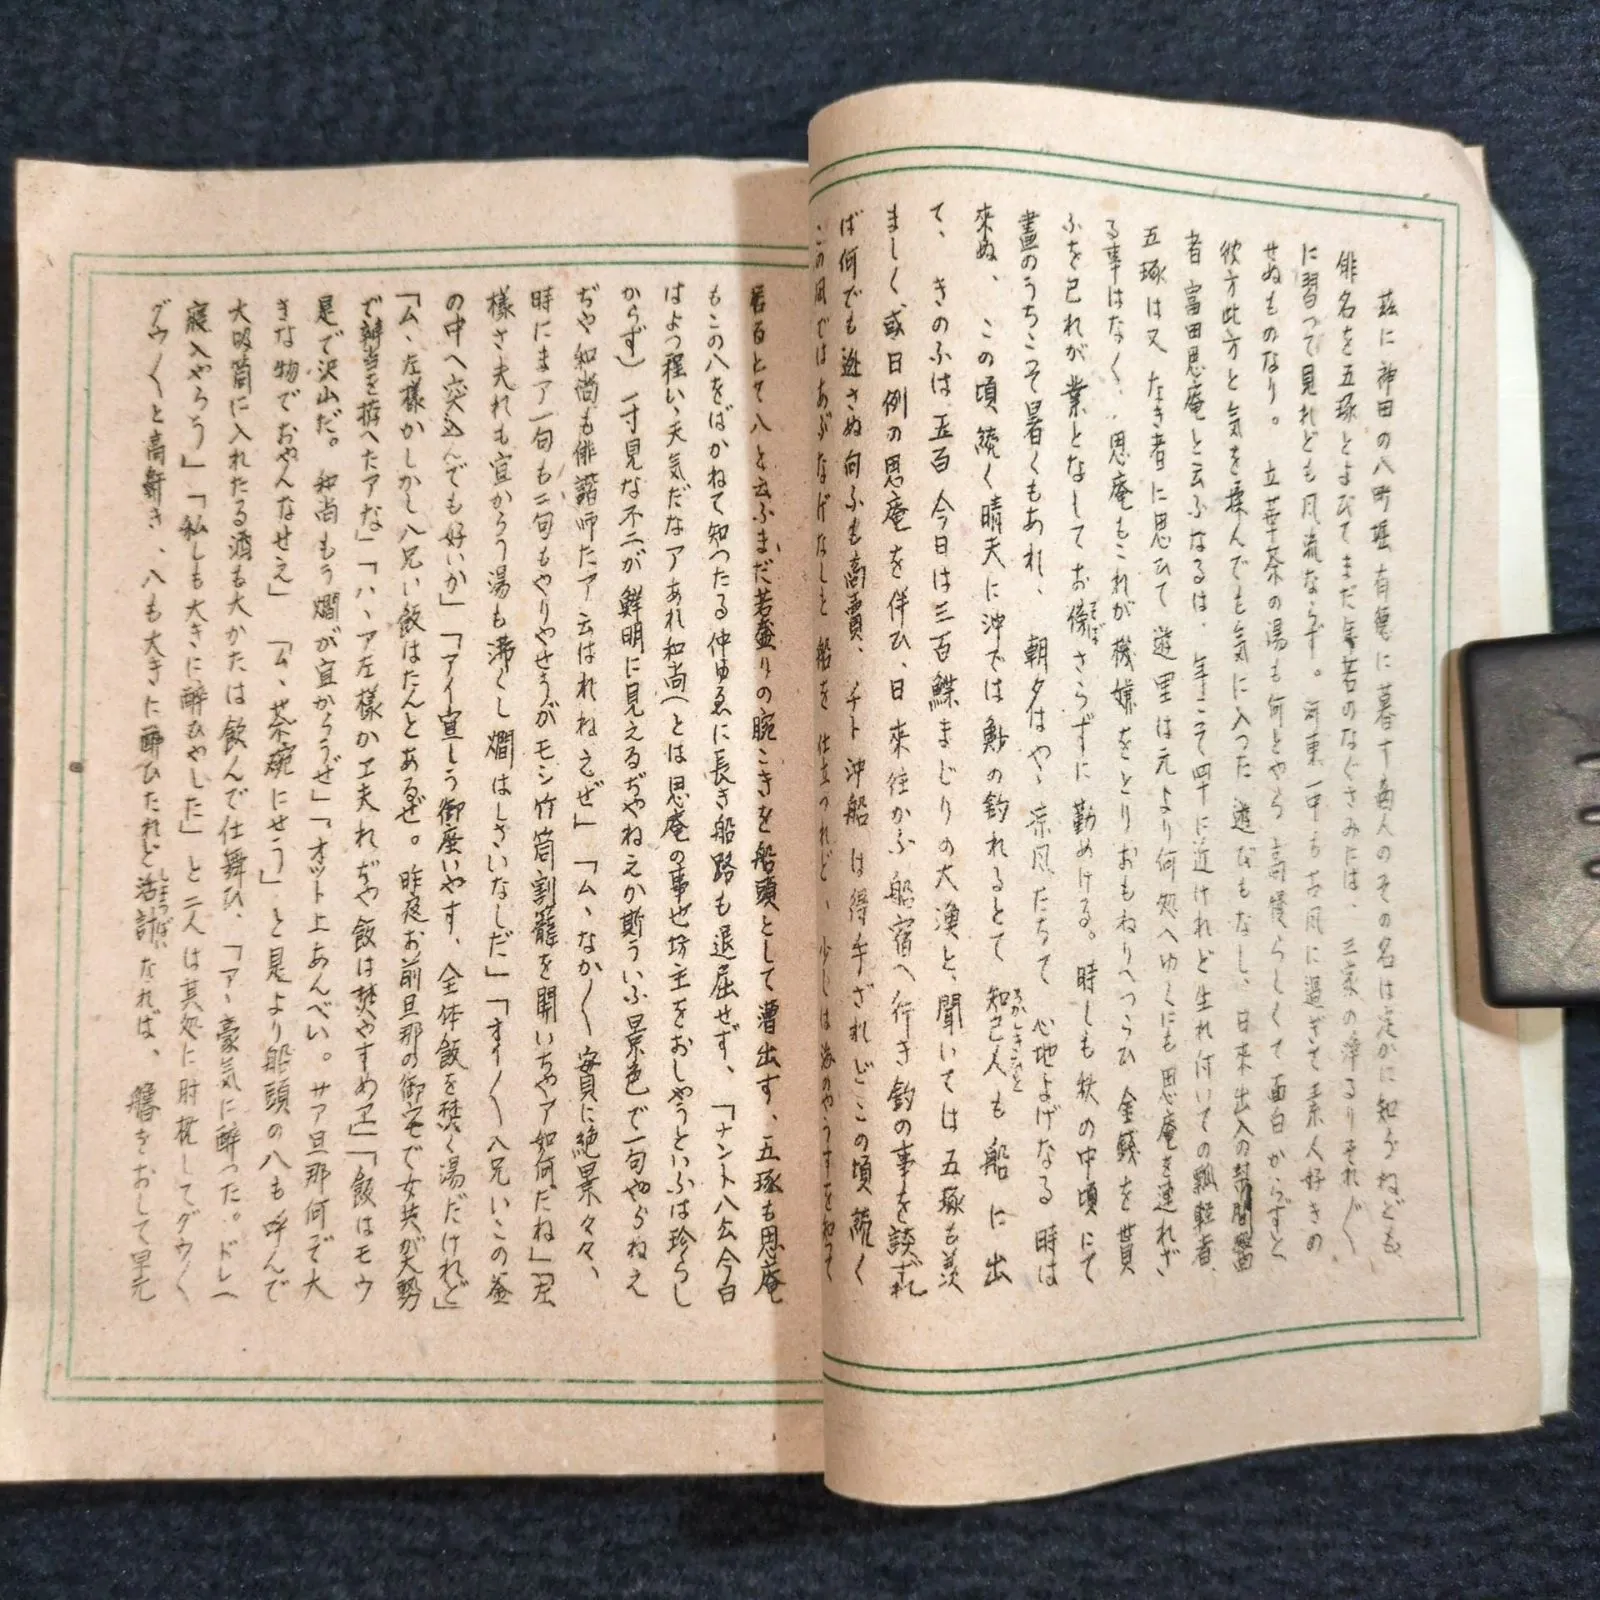 茲に神田の八町堀有徳に暮す商人のその名は定かに知らねども、
俳名を五琢とよびてまだ年若のなぐさみには、三家の澤るりそれ〴〵
に習つて見れども風流ならず。河東一中も古風に過ぎて素人好きの
せぬものなり。立華茶の湯も何とやら高慢らしくて面白からずと
彼方此方と気を揉んでも気に入つた遊びもなし、日来出入の
者富田思庵と云ふなるは、年こそ四十に近けれど生れ付いての瓢軽者、
五琢は又なき者に思ひて遊里は元より何処へゆくにも思庵を連れざ
る事はなく、思庵もこれが機嫌をとりおもねりへつらひ金銭を貰
ふを己れが業となしてお傍さらずに勤めける。時しも秋の中頃にて
晝のうちこそ暑くもあれ、朝夕はやゝ涼風たちて心地よげなる時は
来ぬ、この頃続く晴天に沖では鮎の釣れるとて知己人も船に出
て、きのふは五百今日は三百鰈まじりの大漁と、聞いては五琢も羨
ましく或日例の思庵を伴ひ、日来往かふ船宿へ行き釣の事を談ずれ
ば何でも逃さぬ向ふも商賣、チト沖船は得手ざれどこの頃続く
この凪ではあぶなげなしと船を仕立つれど、少しは海のやうすを知つて
居るとて八と云ふまだ若盛りの腕こきを船頭として漕出す、五琢も思庵
もこの八をばかねて知つたる仲ゆゑに長き船路も退屈せず、「ナント八公今日
はよつ程いゝ天気だなアあれ和尚（とは思庵の事也坊主をおしやうといふは珍らし
からず）一寸見な不二が鮮明に見えるぢやねえか斯ういふ景色で一句やらねえ
ぢや和尚も俳諧師たア云はれねえぜ」「ム、なか〳〵實に絶景々々、
時にまア一句も二句もやりやせうがモシ竹筒割籠を開いちやア如何だね」「左
様さ夫れも宜からう湯も沸くし燗はしさいなしだ」「オイ〳〵八兄いこの釜
の中へ突込んでも好いか」「アイ宜しう御座いやす、全体飯を焚く湯だけれど」
「ム、左様かしかし八兄い飯はたんとあるぜ。昨夜お前旦那の御宅で女共が大勢
で辨当を拵へたアな」「ハ、ア左様かヱ夫れぢや飯は焚やすめヱ」「飯はモウ
是で沢山だ。和尚もう燗が宜からうぜ」「オツト上あんべい。サア旦那何ぞ大
きな物でおやんなせえ」「ム、茶碗にせう」と是より船頭の八も呼んで
大吸筒に入れたる酒も大かたは飲んで仕舞ひ、「アヽ豪気に酔つた。ドレ〳〵
寝入やらう」「私しも大きに酔ひやした」と二人は其処に肘枕してグウ〳〵
グウ〳〵と高鼾き、八も大きに酔ひたれど活計なれば、艪をおして早元